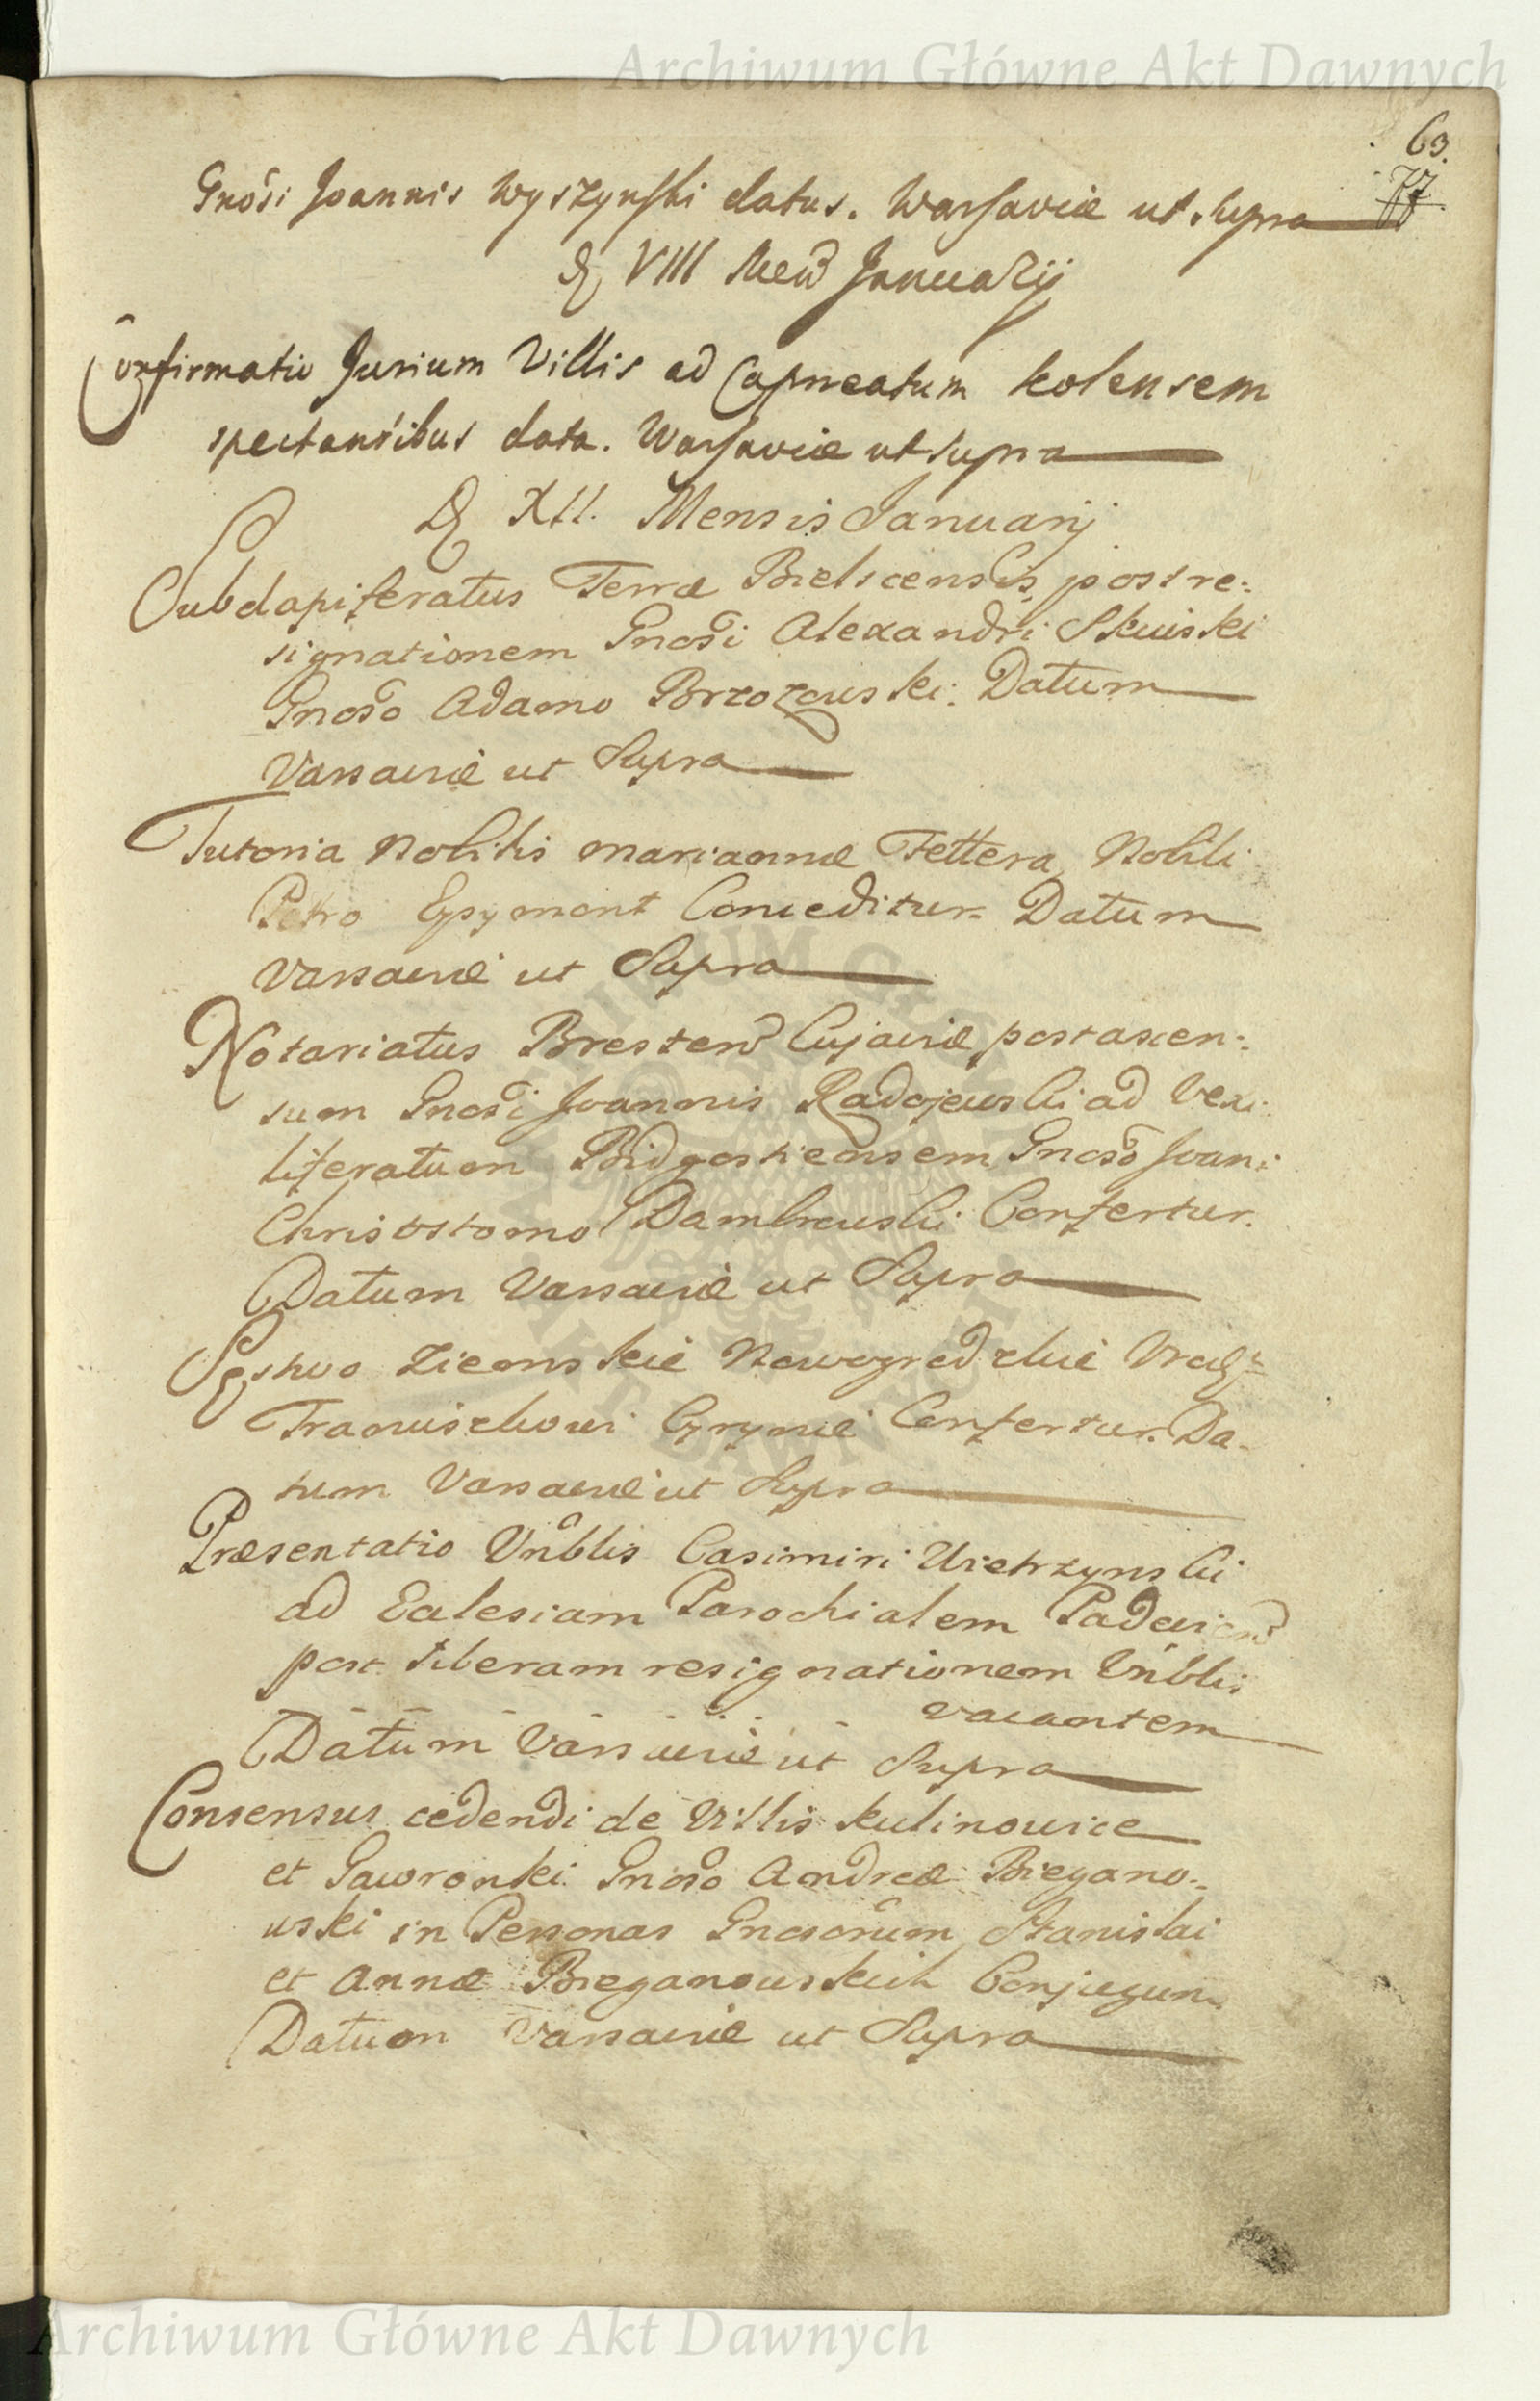 Archiwum Główne Akt Dawnych
63.
77.
Gnosi Joannis Wyszynski datus. Warsaviæ ut supra
D VIII Men Januarij
Confirmatio Jurium Villis ad Capneatum Kolensem
spectantibus data. Warsaviæ ut supra
D XII. Mensis Januarij
Subdapiferatus Terræ Bielscensis, post re:
signationem Gnosi Alexandri Skuiski
Gnoso Adamo Brzozowski. Datum
Varsaviæ ut Supra
Tutoria Nobilis Mariannæ Fettera, Nobili
Petro Ezymont Conceditur. Datum
Varsaviæ ut Supra
Notariatus Bresten Cujaviæ post ascen:
sum Gnosi Joannis Radojewski ad Vexi:
liferatum Bidgostiensem Gnoso Joan:
Christostomo Dambrowski Confertur.
Datum Varsaviæ ut Supra
Sęstwo Ziemskie Nowogredzkie
Franciszkowi Confertur. Da-
tum Varsaviæ ut Supra
Præsentatio Vnblis Casimiri Wietrzynski
ad Ecclesiam Parochialem
post liberam resignationem Vnblis
vacantem
Datum Varsaviæ ut Supra
Consensus cedendi de Villis Kulinowice
et Gaworonki Gnoso Andreæ Biegano:
wski in Personas Gnosorum Stanislai
et Annæ Bieganowskich Conjugum
Datum Varsaviæ ut Supra
Archiwum Główne Akt Dawnych